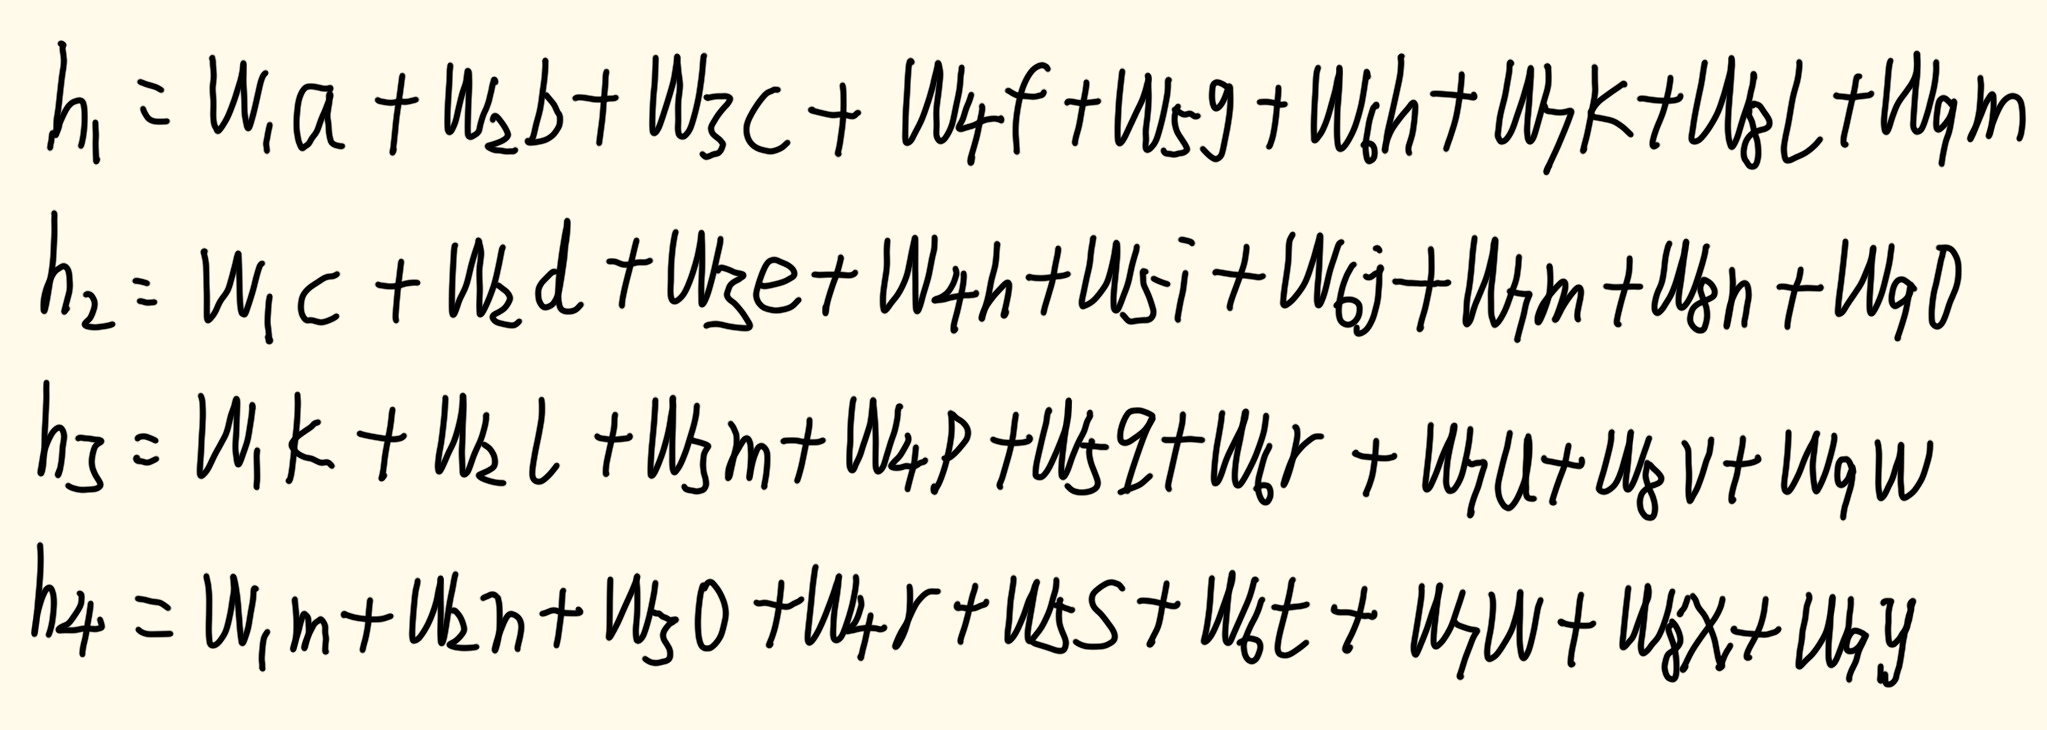 h₁ = W₁a + W₂b + W₃c + W₄f + W₅g + W₆h + W₇k + W₈l + W₉m
h₂ = W₁c + W₂d + W₃e + W₄h + W₅i + W₆j + W₇m + W₈n + W₉o
h₃ = W₁k + W₂l + W₃m + W₄p + W₅q + W₆r + W₇u + W₈v + W₉w
h₄ = W₁m + W₂n + W₃o + W₄r + W₅s + W₆t + W₇w + W₈x + W₉y